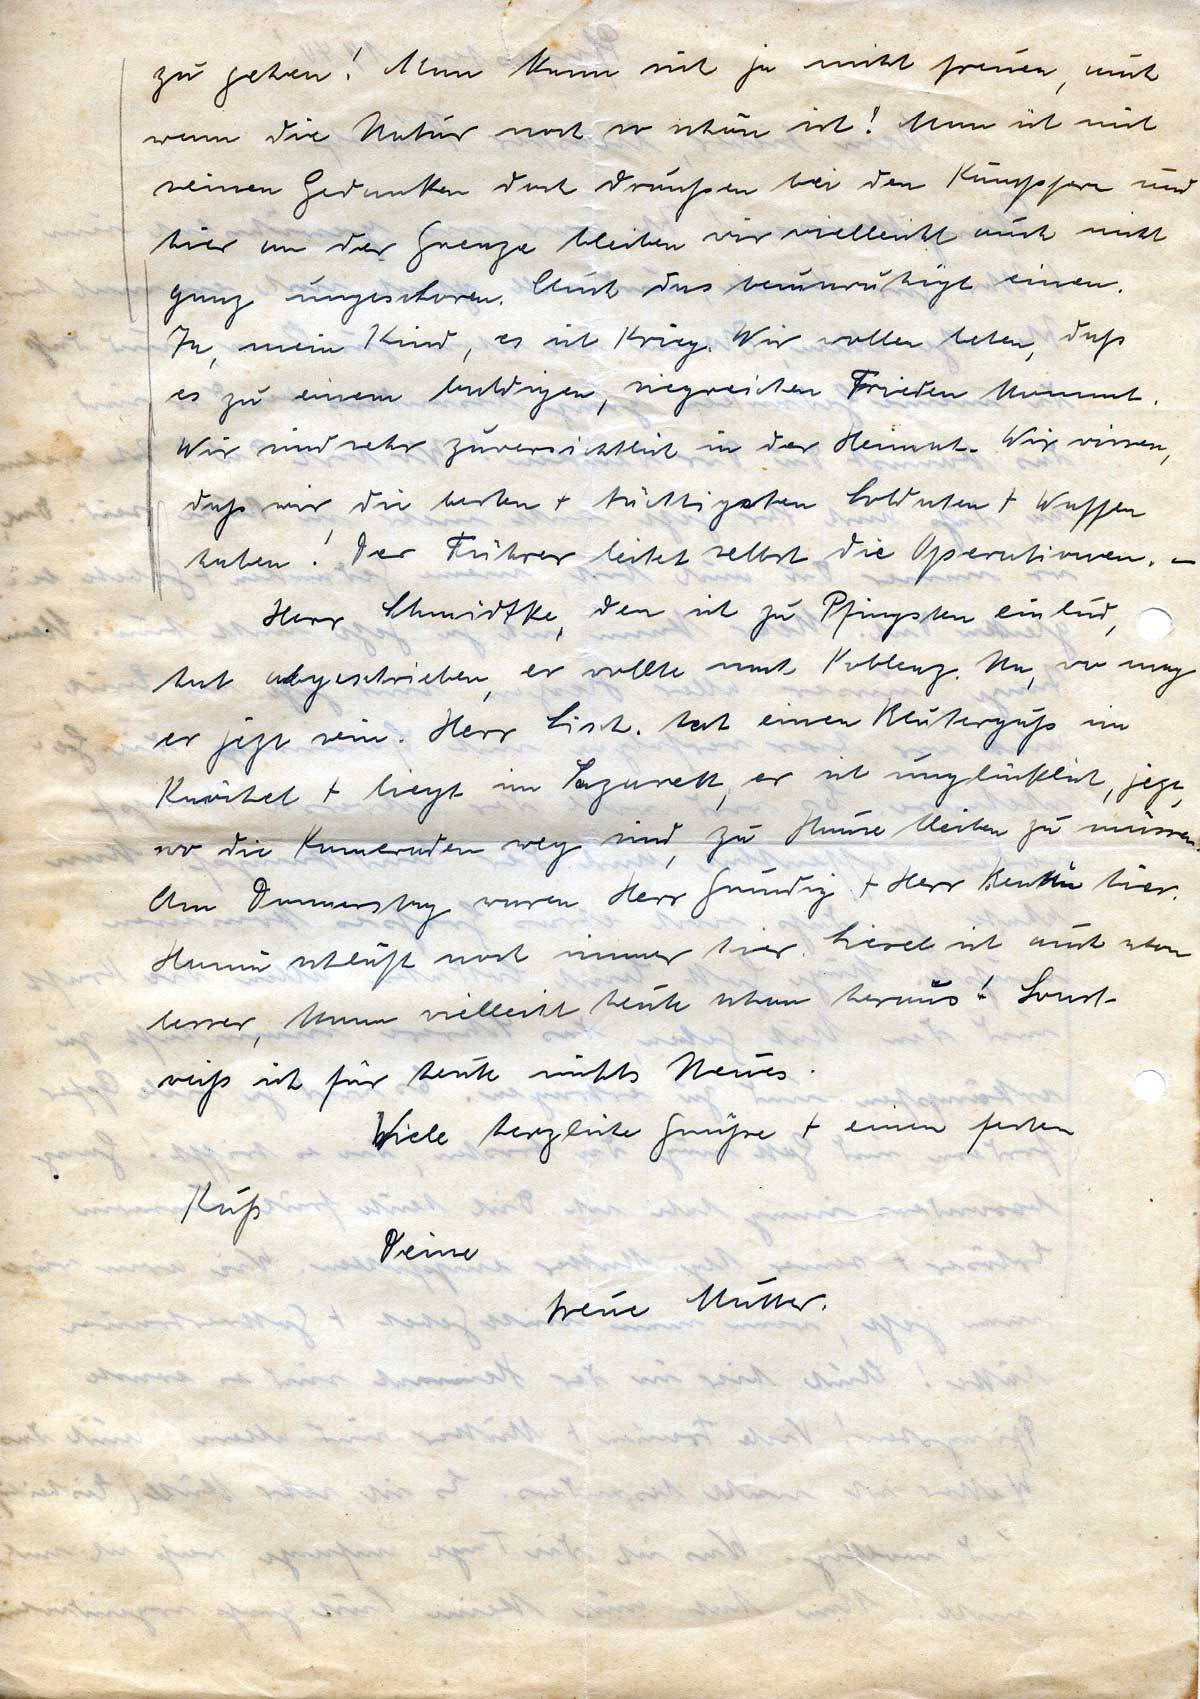 zu gehen! Man kann sich ja nicht freuen, auch
wenn die Natur noch so schön ist! Man ist mit
seinen Gedanken doch draußen bei den Kämpfern und
hier an der Grenze bleiben wir vielleicht auch nicht
ganz ungeschoren. Auch das beunruhigt einen.
Ja, mein Kind, es ist Krieg. Wir wollen beten, daß
es zu einem baldigen, siegreichen Frieden kommt.
Wir sind sehr zuversichtlich in der Heimat. Wir wissen,
daß wir die besten + tüchtigsten Soldaten + Waffen
haben! Der Führer leitet selbst die Operationen. –
Herr Schmidtke, den ich zu Pfingsten einlud,
hat abgeschrieben, er wollte nach Koblenz. Na, wo mag
er jetzt sein. Herr Lisch. hat einen Bluterguß im
Knöchel + liegt im Lazarett, er ist unglücklich, jetzt,
wo die Kameraden weg sind, zu Hause bleiben zu müssen.
Am Donnerstag waren Herr Gründig + Herr hier.
Hanna schläft noch immer hier. Liesel ist auch schon
besser, kann vielleicht heute schon heraus! Sonst
weiß ich für heute nichts Neues.
Viele herzliche Grüße + einen festen
Kuß
Deine
treue Mutter.